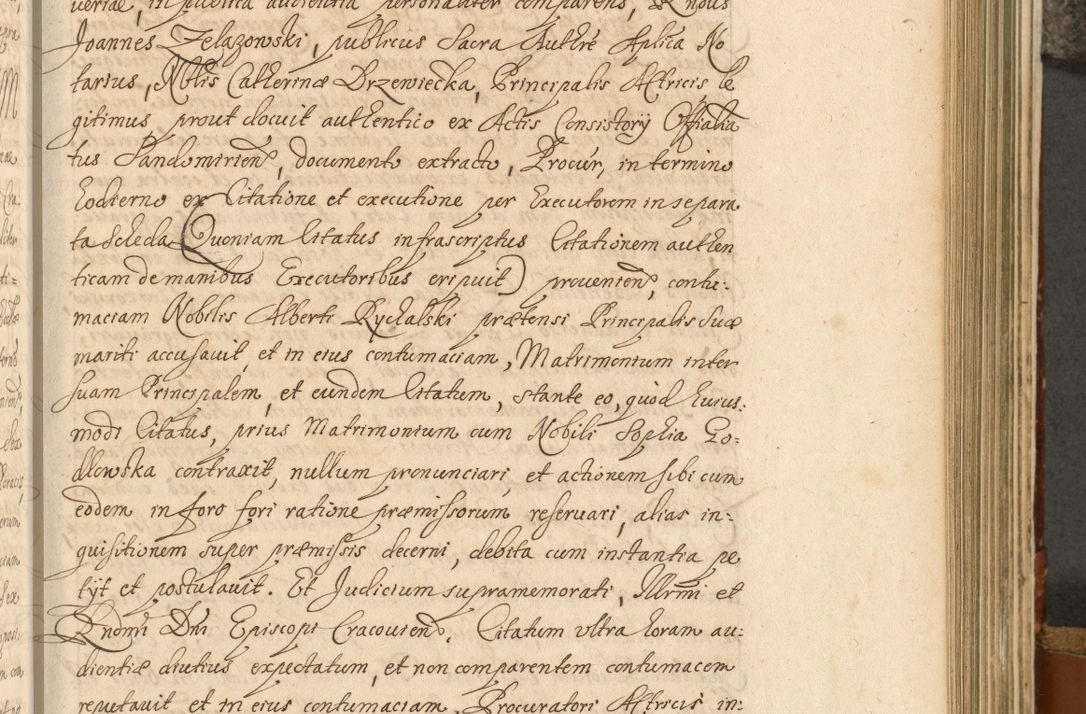 veriæ, in publica audientia personaliter comparens, Rndus
Joannes Zelazowski, publicus Sacra Authrē Aplica No
tarius, Nblis Catherinæ Drzewiecka, Principalis Actricis le
gitimus, prout docuit authentico ex Actis Consistorij Offialia
tus Sandomirien, documento extracto, Procur, in termino
hodierno ex Citatione et executione per Executorem in separa
ta scheda (Quoniam Citatus infrascriptus Citationem authen
ticam de manibus Executoribus eripuit) provenien, contu:
maciam Nobilis Alberti Rychalski prætensi Principalis suæ
mariti accusavit, et in eius contumaciam, Matrimonium inter
suam Principalem, et eundem Citatum, stante eo, quod huius:
modi Citatus, prius Matrimonium cum Nobili Sophia Go:
dlowska contraxit, nullum pronunciari, et actionem sibi cum
eodem in foro fori ratione præmissorum reservari, alias in:
quisitionem super præmissis decerni, debita cum instantia pe
tijt et postulavit. Et Judicium supramemorati, Illrmi et
Rndmi Dni Episcopi Cracovien, Citatum ultra horam au:
dientiæ diutius expectatum, et non comparentem contumacem
reputavit et in eius contumaciam, Procuratori Actricis in: